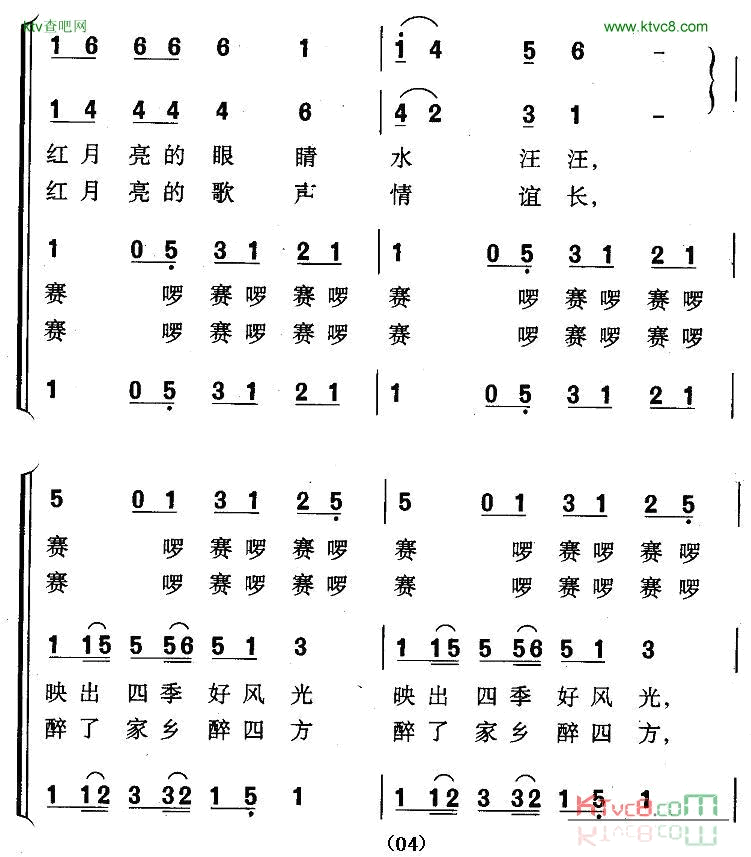 ktv查吧网 www.ktvc8.com
1 6 6 6 6 1 | 1 4 5 6 -
1 4 4 4 4 6 | 4 2 3 1 -
红月 亮的 眼 睛 水 汪 汪,
红月 亮的 歌 声 情 谊 长,
1 0 5 3 1 2 1 | 1 0 5 3 1 2 1
赛 啰 赛啰 赛啰 赛 啰 赛啰 赛啰
赛 啰 赛啰 赛啰 赛 啰 赛啰 赛啰
1 0 5 3 1 2 1 | 1 0 5 3 1 2 1
5 0 1 3 1 2 5 | 5 0 1 3 1 2 5
赛 啰 赛啰 赛啰 赛 啰 赛啰 赛啰
赛 啰 赛啰 赛啰 赛 啰 赛啰 赛啰
1 15 5 56 5 1 3 | 1 15 5 56 5 1 3
映出 四季 好风 光 映出 四季 好风 光,
醉了 家乡 醉四 方 醉了 家乡 醉四 方,
1 12 3 32 1 5 1 | 1 12 3 32 1 5 1
KTvc8.com
(04)